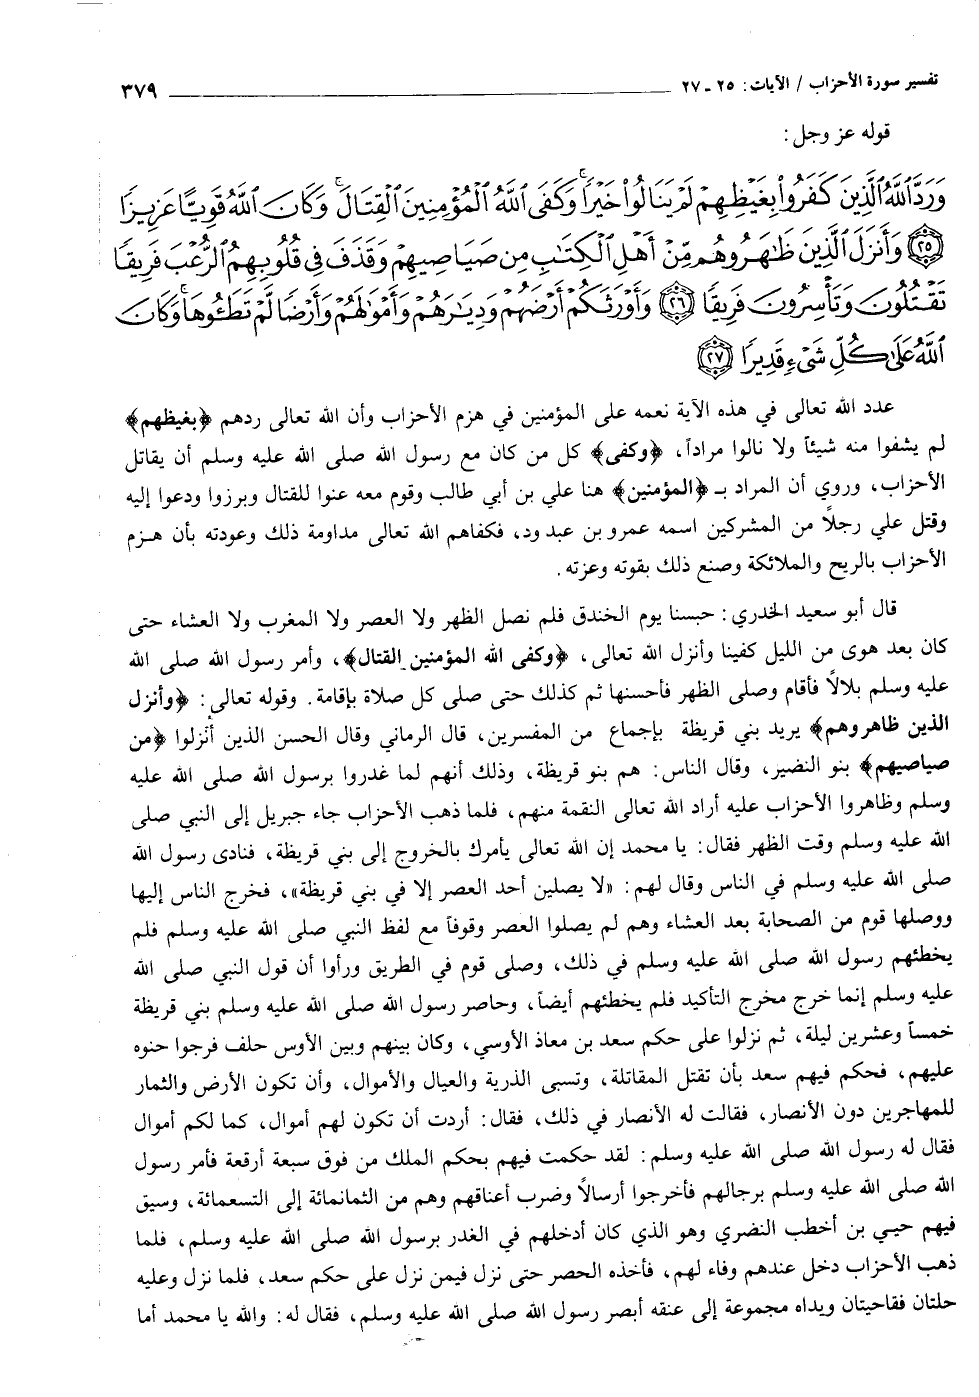 تفسير سورة الأحزاب / الآيات: ٢٥ ـ ٢٧ ٣٧٩
قوله عز وجل:
وَرَدَّ ٱللَّهُ ٱلَّذِينَ كَفَرُوا۟ بِغَيْظِهِمْ لَمْ يَنَالُوا۟ خَيْرًا ۚ وَكَفَى ٱللَّهُ ٱلْمُؤْمِنِينَ ٱلْقِتَالَ ۚ وَكَانَ ٱللَّهُ قَوِيًّا عَزِيزًا
﴿٢٥﴾ وَأَنزَلَ ٱلَّذِينَ ظَٰهَرُوهُم مِّنْ أَهْلِ ٱلْكِتَٰبِ مِن صَيَاصِيهِمْ وَقَذَفَ فِى قُلُوبِهِمُ ٱلرُّعْبَ فَرِيقًا
تَقْتُلُونَ وَتَأْسِرُونَ فَرِيقًا ﴿٢٦﴾ وَأَوْرَثَكُمْ أَرْضَهُمْ وَدِيَٰرَهُمْ وَأَمْوَٰلَهُمْ وَأَرْضًا لَّمْ تَطَـُٔوهَا ۚ وَكَانَ
ٱللَّهُ عَلَىٰ كُلِّ شَىْءٍ قَدِيرًا ﴿٢٧﴾
عدد الله تعالى في هذه الآية نعمه على المؤمنين في هزم الأحزاب وأن الله تعالى ردهم ﴿بغيظهم﴾
لم يشفوا منه شيئاً ولا نالوا مراداً، ﴿وكفى﴾ كل من كان مع رسول الله صلى الله عليه وسلم أن يقاتل
الأحزاب، وروي أن المراد بـ ﴿المؤمنين﴾ هنا علي بن أبي طالب وقوم معه عنوا للقتال وبرزوا ودعوا إليه
وقتل علي رجلاً من المشركين اسمه عمرو بن عبد ود، فكفاهم الله تعالى مداومة ذلك وعودته بأن هـزم
الأحزاب بالريح والملائكة وصنع ذلك بقوته وعزته.
قال أبو سعيد الخدري: حبسنا يوم الخندق فلم نصل الظهر ولا العصر ولا المغرب ولا العشاء حتى
كان بعد هوى من الليل كفينا وأنزل الله تعالى، ﴿وكفى الله المؤمنين القتال﴾، وأمر رسول الله صلى الله
عليه وسلم بلالاً فأقام وصلى الظهر فأحسنها ثم كذلك حتى صلى كل صلاة بإقامة. وقوله تعالى: ﴿وأنزل
الذين ظاهروهم﴾ يريد بني قريظة بإجماع من المفسرين، قال الرماني وقال الحسن الذين أنزلوا ﴿من
صياصيهم﴾ بنو النضير، وقال الناس: هم بنو قريظة، وذلك أنهم لما غدروا برسول الله صلى الله عليه
وسلم وظاهروا الأحزاب عليه أراد الله تعالى النقمة منهم، فلما ذهب الأحزاب جاء جبريل إلى النبي صلى
الله عليه وسلم وقت الظهر فقال: يا محمد إن الله تعالى يأمرك بالخروج إلى بني قريظة، فنادى رسول الله
صلى الله عليه وسلم في الناس وقال لهم: «لا يصلين أحد العصر إلا في بني قريظة»، فخرج الناس إليها
ووصلها قوم من الصحابة بعد العشاء وهم لم يصلوا العصر وقوفاً مع لفظ النبي صلى الله عليه وسلم فلم
يخطئهم رسول الله صلى الله عليه وسلم في ذلك، وصلى قوم في الطريق ورأوا أن قول النبي صلى الله
عليه وسلم إنما خرج مخرج التأكيد فلم يخطئهم أيضاً، وحاصر رسول الله صلى الله عليه وسلم بني قريظة
خمساً وعشرين ليلة، ثم نزلوا على حكم سعد بن معاذ الأوسي، وكان بينهم وبين الأوس حلف فرجوا حنوه
عليهم، فحكم فيهم سعد بأن تقتل المقاتلة، وتسبى الذرية والعيال والأموال، وأن تكون الأرض والثمار
للمهاجرين دون الأنصار، فقالت له الأنصار في ذلك، فقال: أردت أن تكون لهم أموال، كما لكم أموال
فقال له رسول الله صلى الله عليه وسلم: لقد حكمت فيهم بحكم الملك من فوق سبعة أرقعة فأمر رسول
الله صلى الله عليه وسلم برجالهم فأخرجوا أرسالاً وضرب أعناقهم وهم من الثمانمائة إلى التسعمائة، وسيق
فيهم حيي بن أخطب النضري وهو الذي كان أدخلهم في الغدر برسول الله صلى الله عليه وسلم، فلما
ذهب الأحزاب دخل عندهم وفاء لهم، فأخذه الحصر حتى نزل فيمن نزل على حكم سعد، فلما نزل وعليه
حلتان فقاحيتان ويداه مجموعة إلى عنقه أبصر رسول الله صلى الله عليه وسلم، فقال له: والله يا محمد أما